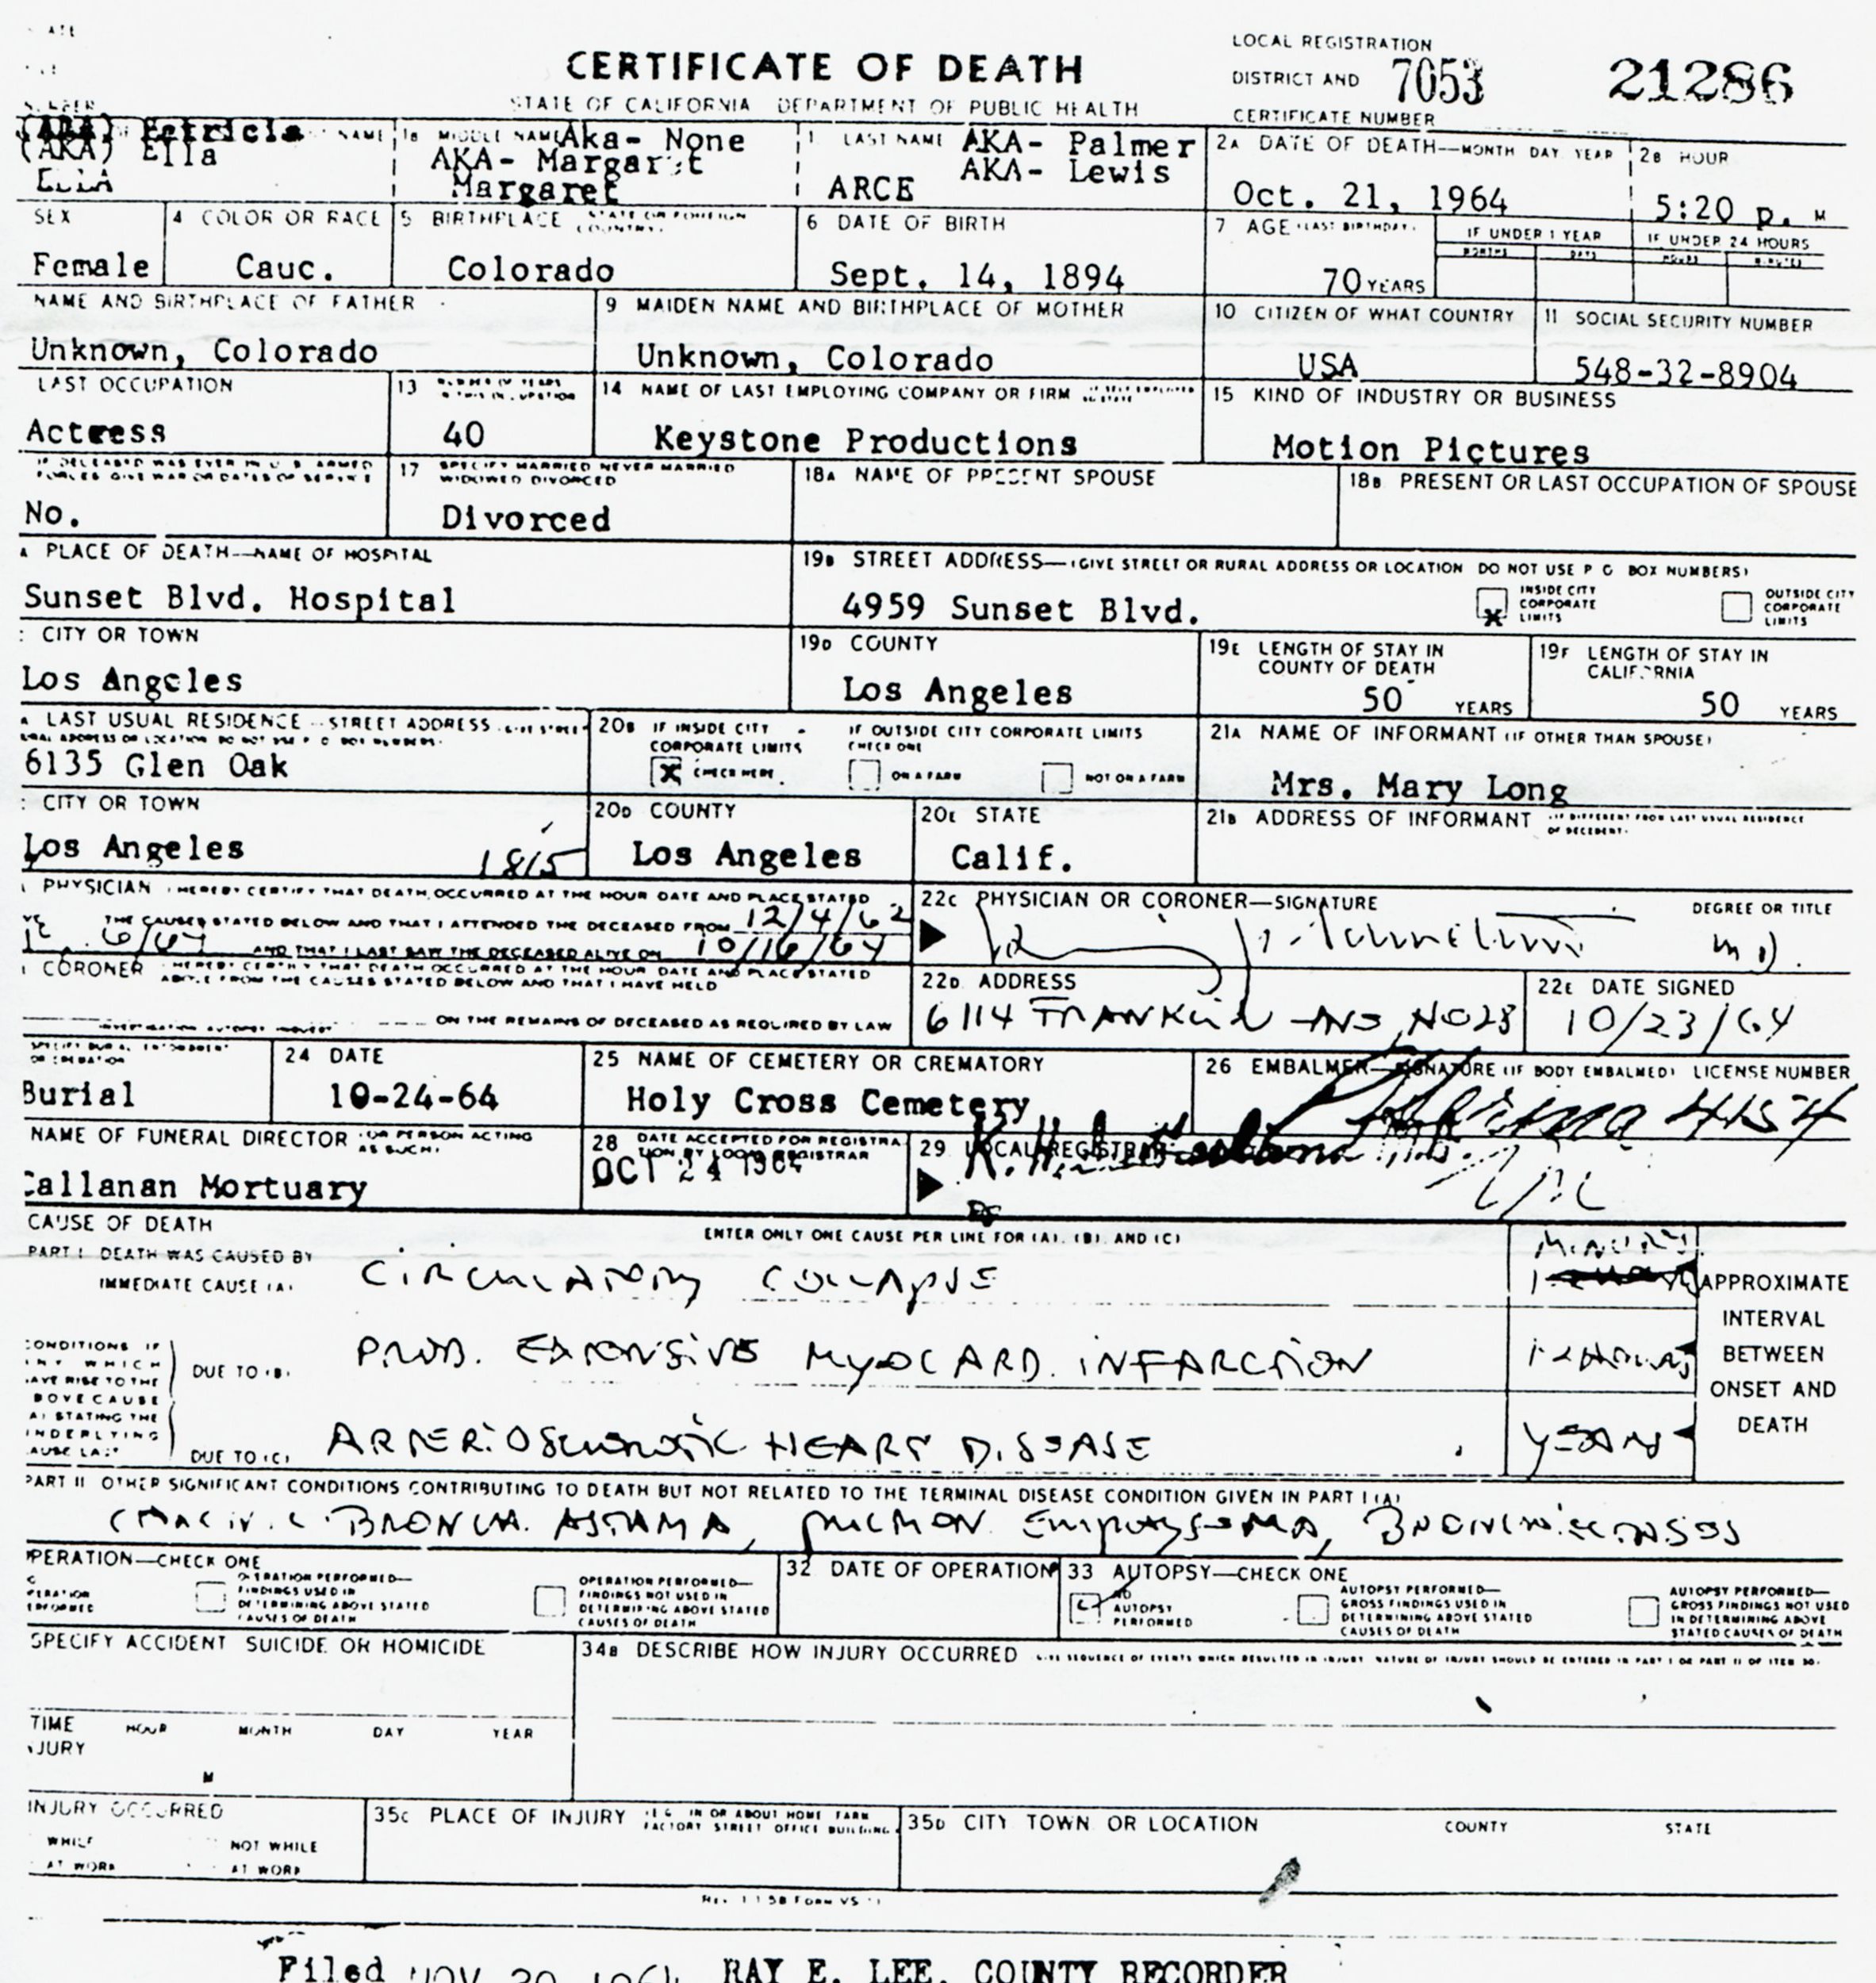 CERTIFICATE OF DEATH
STATE OF CALIFORNIA DEPARTMENT OF PUBLIC HEALTH
LOCAL REGISTRATION
DISTRICT AND 7053 21286
CERTIFICATE NUMBER
(AKA) Patricia NAME 1B MIDDLE NAME Aka- None LAST NAME AKA- Palmer 2A DATE OF DEATH—MONTH DAY YEAR 2B HOUR
(AKA) Ella AKA- Margaret AKA- Lewis
ELLA Margaret ARCE Oct. 21, 1964 5:20 p. M
SEX 4 COLOR OR RACE 5 BIRTHPLACE (STATE OR FOREIGN COUNTRY) 6 DATE OF BIRTH 7 AGE (LAST BIRTHDAY) IF UNDER 1 YEAR IF UNDER 24 HOURS
MONTHS DAYS HOURS MINUTES
Female Cauc. Colorado Sept. 14, 1894 70 YEARS
NAME AND BIRTHPLACE OF FATHER 9 MAIDEN NAME AND BIRTHPLACE OF MOTHER 10 CITIZEN OF WHAT COUNTRY 11 SOCIAL SECURITY NUMBER
Unknown, Colorado Unknown, Colorado USA 548-32-8904
LAST OCCUPATION 13 NUMBER OF YEARS IN THIS OCCUPATION 14 NAME OF LAST EMPLOYING COMPANY OR FIRM 15 KIND OF INDUSTRY OR BUSINESS
Actress 40 Keystone Productions Motion Pictures
IF DECEASED WAS EVER IN U. S. ARMED FORCES GIVE WAR OR DATES OF SERVICE 17 SPECIFY MARRIED NEVER MARRIED WIDOWED DIVORCED 18A NAME OF PRESENT SPOUSE 18B PRESENT OR LAST OCCUPATION OF SPOUSE
No. Divorced
A PLACE OF DEATH—NAME OF HOSPITAL 19B STREET ADDRESS—(GIVE STREET OR RURAL ADDRESS OR LOCATION DO NOT USE P O BOX NUMBERS)
Sunset Blvd. Hospital 4959 Sunset Blvd. X INSIDE CITY CORPORATE LIMITS OUTSIDE CITY CORPORATE LIMITS
CITY OR TOWN 19D COUNTY 19E LENGTH OF STAY IN COUNTY OF DEATH 19F LENGTH OF STAY IN CALIFORNIA
Los Angeles Los Angeles 50 YEARS 50 YEARS
A LAST USUAL RESIDENCE—STREET ADDRESS 20B IF INSIDE CITY CORPORATE LIMITS IF OUTSIDE CITY CORPORATE LIMITS CHECK ONE 21A NAME OF INFORMANT (IF OTHER THAN SPOUSE)
6135 Glen Oak X CHECK HERE ON A FARM NOT ON A FARM Mrs. Mary Long
CITY OR TOWN 20D COUNTY 20E STATE 21B ADDRESS OF INFORMANT (IF DIFFERENT FROM LAST USUAL RESIDENCE OF DECEDENT)
Los Angeles 1815 Los Angeles Calif.
PHYSICIAN I HEREBY CERTIFY THAT DEATH OCCURRED AT THE HOUR DATE AND PLACE STATED 22C PHYSICIAN OR CORONER—SIGNATURE DEGREE OR TITLE
THE CAUSES STATED BELOW AND THAT I ATTENDED THE DECEASED FROM 12/4/62
AND THAT I LAST SAW THE DECEASED ALIVE ON 10/16/64 M D.
CORONER I HEREBY CERTIFY THAT DEATH OCCURRED AT THE HOUR DATE AND PLACE STATED 22D ADDRESS 22E DATE SIGNED
ABOVE FROM THE CAUSES STATED BELOW AND THAT I HAVE HELD
ON THE REMAINS OF DECEASED AS REQUIRED BY LAW 6114 FRANKLIN 10/23/64
24 DATE 25 NAME OF CEMETERY OR CREMATORY 26 EMBALMER—SIGNATURE (IF BODY EMBALMED) LICENSE NUMBER
Burial 10-24-64 Holy Cross Cemetery 4154
NAME OF FUNERAL DIRECTOR (OR PERSON ACTING AS SUCH) 28 DATE ACCEPTED FOR REGISTRATION BY LOCAL REGISTRAR 29 LOCAL REGISTRAR
Callanan Mortuary OCT 24 1964
CAUSE OF DEATH ENTER ONLY ONE CAUSE PER LINE FOR (A), (B), AND (C)
PART I DEATH WAS CAUSED BY
IMMEDIATE CAUSE (A) CIRCULATORY COLLAPSE MINUTES
APPROXIMATE INTERVAL BETWEEN ONSET AND DEATH
CONDITIONS IF ANY WHICH GAVE RISE TO THE ABOVE CAUSE (A) STATING THE UNDERLYING CAUSE LAST
DUE TO (B) PROB. EXTENSIVE MYOCARD. INFARCTION
DUE TO (C) ARTERIOSCLEROTIC HEART DISEASE YEARS
PART II OTHER SIGNIFICANT CONDITIONS CONTRIBUTING TO DEATH BUT NOT RELATED TO THE TERMINAL DISEASE CONDITION GIVEN IN PART I (A)
CHRONIC BRONCH. ASTHMA, PULMON. EMPHYSEMA,
OPERATION—CHECK ONE 32 DATE OF OPERATION 33 AUTOPSY—CHECK ONE
OPERATION PERFORMED—FINDINGS USED IN DETERMINING ABOVE STATED CAUSES OF DEATH
OPERATION PERFORMED—FINDINGS NOT USED IN DETERMINING ABOVE STATED CAUSES OF DEATH
NO AUTOPSY PERFORMED
AUTOPSY PERFORMED—GROSS FINDINGS USED IN DETERMINING ABOVE STATED CAUSES OF DEATH
AUTOPSY PERFORMED—GROSS FINDINGS NOT USED IN DETERMINING ABOVE STATED CAUSES OF DEATH
SPECIFY ACCIDENT SUICIDE OR HOMICIDE 34B DESCRIBE HOW INJURY OCCURRED (GIVE SEQUENCE OF EVENTS WHICH RESULTED IN INJURY NATURE OF INJURY SHOULD BE ENTERED IN PART I OR PART II OF ITEM 30)
TIME HOUR MONTH DAY YEAR
INJURY
M
INJURY OCCURRED 35C PLACE OF INJURY (E G IN OR ABOUT HOME FARM FACTORY STREET OFFICE BUILDING) 35D CITY TOWN OR LOCATION COUNTY STATE
WHILE AT WORK NOT WHILE AT WORK
FORM VS
Filed NOV 20 1964 RAY E. LEE, COUNTY RECORDER